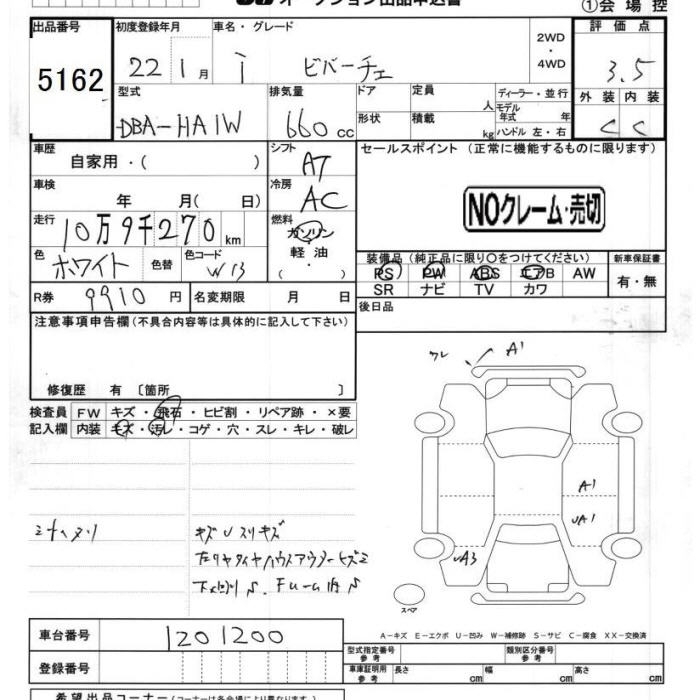 オークション出品申込書
①会場控
出品番号 初度登録年月 車名・グレード 2WD・4WD 評価点
5162 22 1月 i ビバーチェ 3.5
型式 排気量 ドア 定員 人 ディーラー・並行 外装 内装
DBA-HA1W 660cc 形状 積載 kg モデル年式 年 ハンドル 左・右 C C
車歴 自家用・( ) シフト AT セールスポイント (正常に機能するものに限ります)
車検 年 月( 日) 冷房 AC
NOクレーム・売切
走行 10万9千270km 燃料 ガソリン・軽油・( )
色 ホワイト 色替 色コード W13
装備品 (純正品に限り○をつけてください) 新車保証書
PS PW ABS エアB AW 有・無
SR ナビ TV カワ
R券 9910円 名変期限 月 日 後日品
注意事項申告欄 (不具合内容等は具体的に記入して下さい)
修復歴 有 〔箇所 〕
ワレ A1
検査員 FW キズ・飛石・ヒビ割・リペア跡・×要
記入欄 内装 キズ・汚レ・コゲ・穴・スレ・キレ・破レ
A1
UA1
キズUスリキズ
UA3
スペア
A-キズ E-エクボ U-凹み W-補修跡 S-サビ C-腐食 XX-交換済
車台番号 1201200 型式指定番号 参考 類別区分番号 参考
登録番号 車庫証明用 参考 長さ cm 幅 cm 高さ cm
希望出品コーナー (コーナーは各会場により異なります)